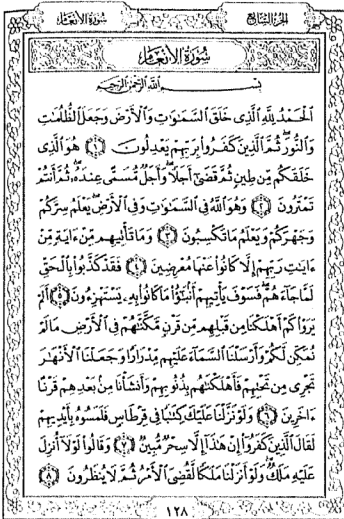 سُورَةُ الأَنْعَامِ الجُزْءُ السَّابِعُ
سُورَةُ الأَنْعَامِ
بِسْمِ اللَّهِ الرَّحْمَٰنِ الرَّحِيمِ
الْحَمْدُ لِلَّهِ الَّذِى خَلَقَ السَّمَٰوَٰتِ وَالْأَرْضَ وَجَعَلَ الظُّلُمَٰتِ
وَالنُّورَ ثُمَّ الَّذِينَ كَفَرُوا بِرَبِّهِمْ يَعْدِلُونَ ۝١ هُوَ الَّذِى
خَلَقَكُم مِّن طِينٍ ثُمَّ قَضَىٰٓ أَجَلًا وَأَجَلٌ مُّسَمًّى عِندَهُۥ ثُمَّ أَنتُمْ
تَمْتَرُونَ ۝٢ وَهُوَ اللَّهُ فِى السَّمَٰوَٰتِ وَفِى الْأَرْضِ يَعْلَمُ سِرَّكُمْ
وَجَهْرَكُمْ وَيَعْلَمُ مَا تَكْسِبُونَ ۝٣ وَمَا تَأْتِيهِم مِّنْ ءَايَةٍ مِّنْ
ءَايَٰتِ رَبِّهِمْ إِلَّا كَانُوا عَنْهَا مُعْرِضِينَ ۝٤ فَقَدْ كَذَّبُوا بِالْحَقِّ
لَمَّا جَآءَهُمْ فَسَوْفَ يَأْتِيهِمْ أَنۢبَٰٓؤُا مَا كَانُوا بِهِۦ يَسْتَهْزِءُونَ ۝٥ أَلَمْ
يَرَوْا كَمْ أَهْلَكْنَا مِن قَبْلِهِم مِّن قَرْنٍ مَّكَّنَّٰهُمْ فِى الْأَرْضِ مَا لَمْ
نُمَكِّن لَّكُمْ وَأَرْسَلْنَا السَّمَآءَ عَلَيْهِم مِّدْرَارًا وَجَعَلْنَا الْأَنْهَٰرَ
تَجْرِى مِن تَحْتِهِمْ فَأَهْلَكْنَٰهُم بِذُنُوبِهِمْ وَأَنشَأْنَا مِنۢ بَعْدِهِمْ قَرْنًا
ءَاخَرِينَ ۝٦ وَلَوْ نَزَّلْنَا عَلَيْكَ كِتَٰبًا فِى قِرْطَاسٍ فَلَمَسُوهُ بِأَيْدِيهِمْ
لَقَالَ الَّذِينَ كَفَرُوٓا إِنْ هَٰذَآ إِلَّا سِحْرٌ مُّبِينٌ ۝٧ وَقَالُوا لَوْلَآ أُنزِلَ
عَلَيْهِ مَلَكٌ وَلَوْ أَنزَلْنَا مَلَكًا لَّقُضِىَ الْأَمْرُ ثُمَّ لَا يُنظَرُونَ ۝٨
١٢٨